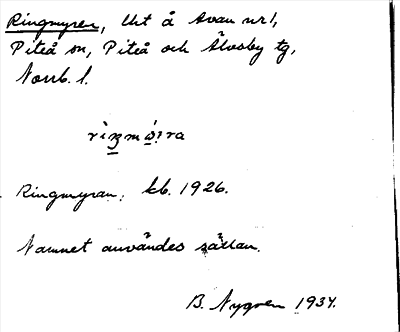 Ringmyren, lht å Avan nr 1,
Piteå sn, Piteå och Älvsby tg,
Norrb. l.
Ringmyran, kb. 1926.
Namnet användes sällan.
B. Nygren 1937.